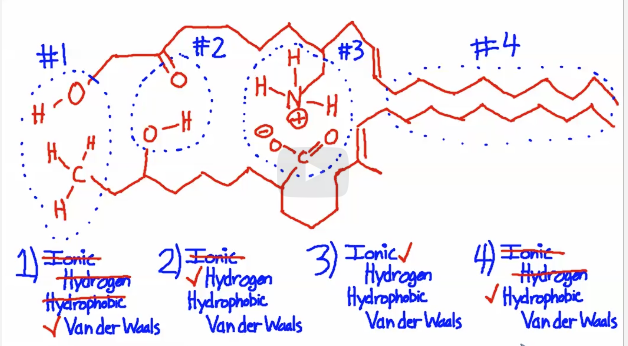 #1
#2
#3
#4
H
O
O
H
H
N
H
⊕
O
H
⊖
O
C
O
H
H
C
H
1) Ionic
Hydrogen
Hydrophobic
✓ Van der Waals
2) Ionic
✓ Hydrogen
Hydrophobic
Van der Waals
3) Ionic ✓
Hydrogen
Hydrophobic
Van der Waals
4) Ionic
Hydrogen
✓ Hydrophobic
Van der Waals